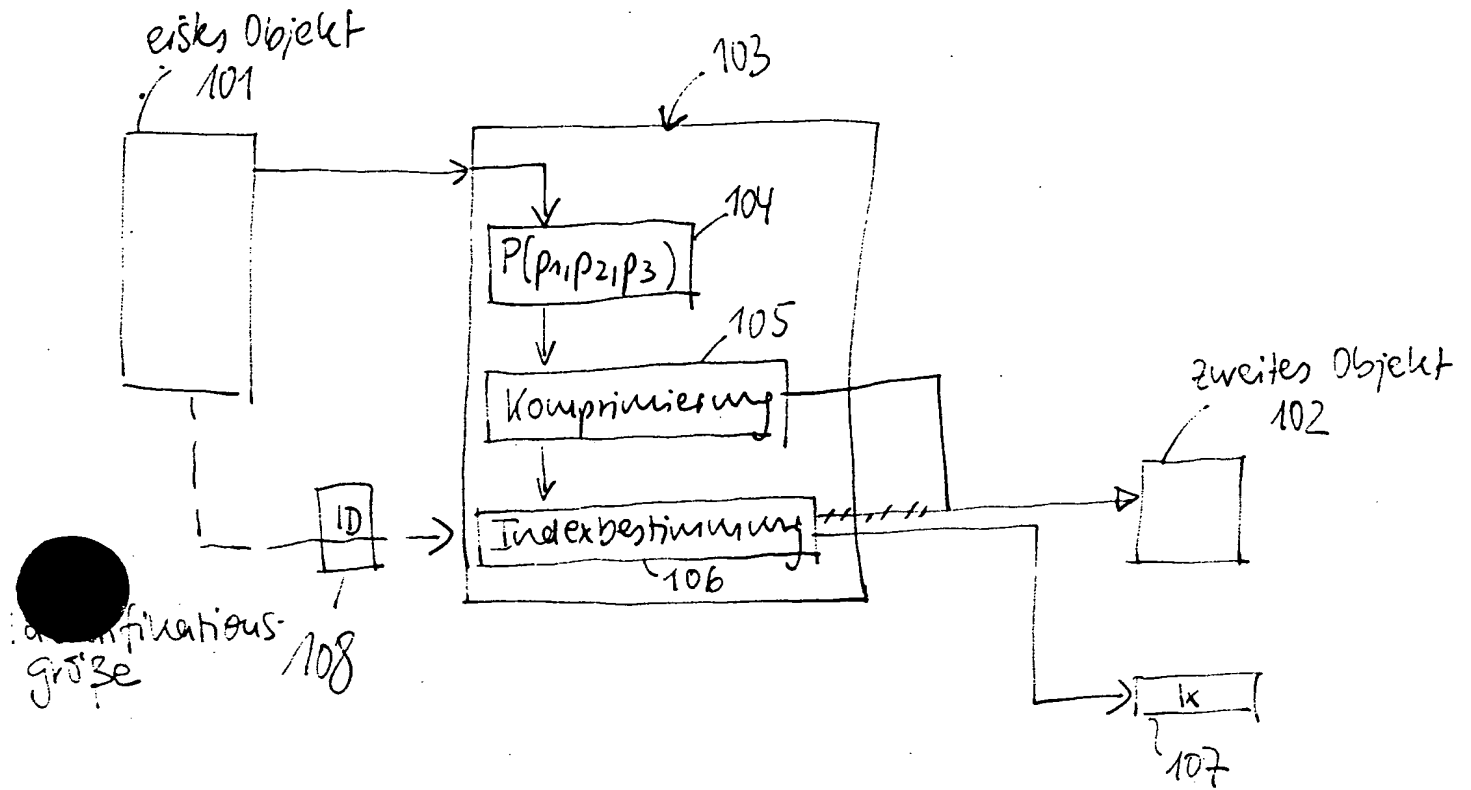 erstes Objekt
101
103
104
P(p1,p2,p3)
105
Komprimierung
zweites Objekt
102
ID
Indexbestimmung
106
größe
108
Ix
107